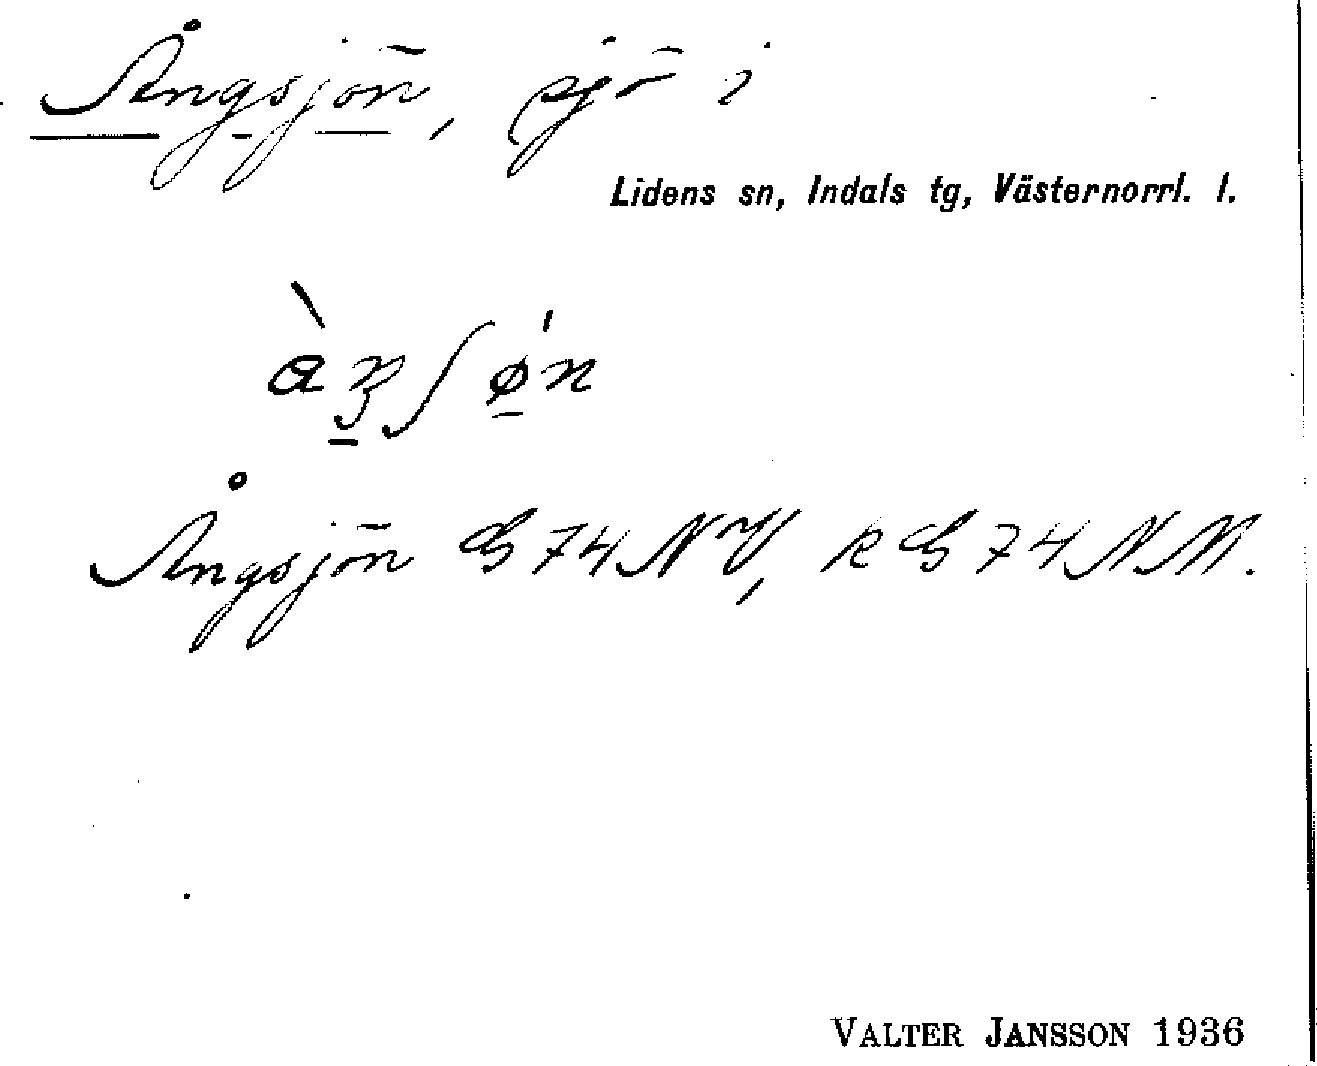 Ångsjön, sjö i
Lidens sn, Indals tg, Västernorrl. l.
Ångsjön G 74 NV, k G 74 NM.
VALTER JANSSON 1936